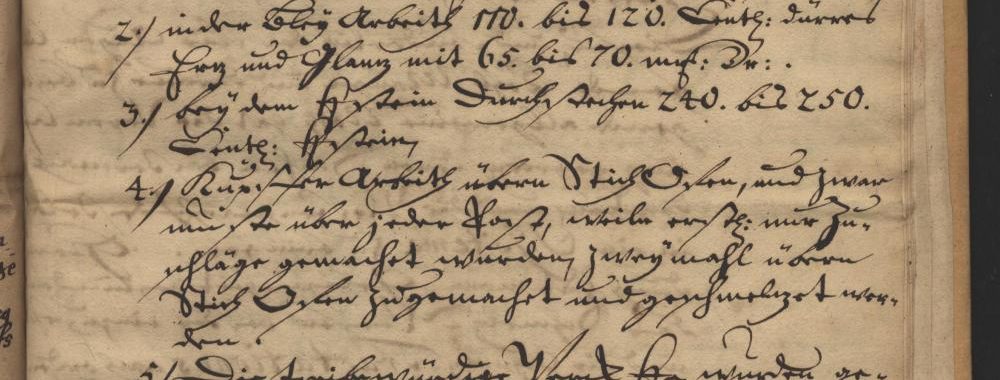 2./ in der Bley Arbeith 110. bis 120. Centh: dürres
Ertz und Glantz mit 65. bis 70. mf: Dr: .
3./ bey dem Bleystein Durchstechen 240. bis 250.
Centh: stein,
4./ Kupffer Arbeith übern Stich Ofen, und zwar
muste über jeder Post, weiln erstl: nur Zu-
schläge gemachet wurden, zweymahl übern
Stich Ofen zugemachet und geschmeltzet wer-
den.
5./ Die wurden ge-